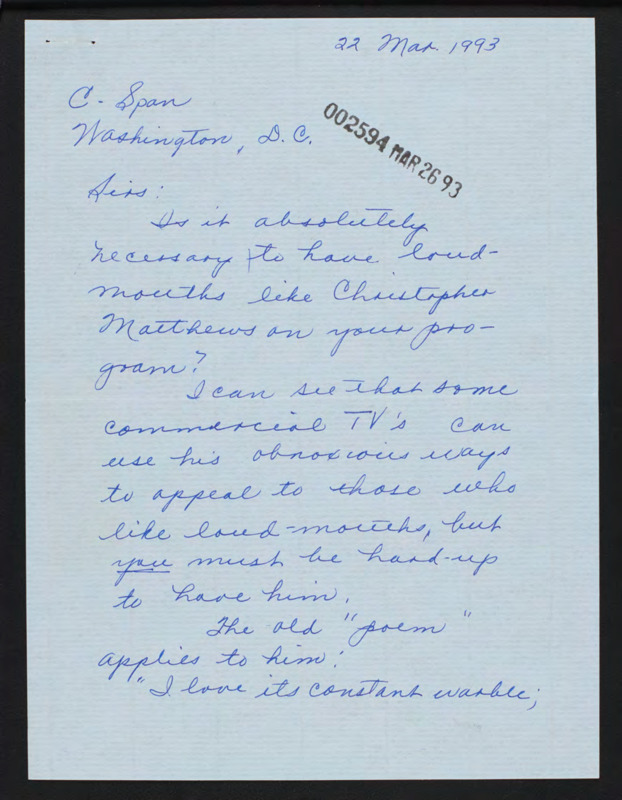 22 Mar 1993
C-Span
Washington, D.C.
002594 MAR 26 93
Sirs:
Is it absolutely
necessary to have loud-
mouths like Christopher
Matthews on your pro-
gram?
I can see that some
commercial TV's can
use his obnoxious ways
to appeal to those who
like loud-mouths, but
you must be hard-up
to have him.
The old "poem"
applies to him:
"I love its constant warble;